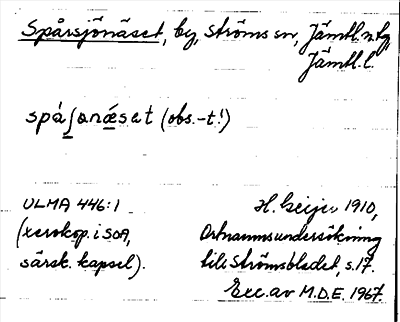 Spårsjönäset, by, Ströms sn, Jämtl. n. tg
Jämtl. l.
spá ʃonǽset (obs. -t!)
ULMA 446:1
(xerokop. i SOA,
särsk. kapsel).
H. Geijer 1910,
Ortnamnsundersökning
till Strömsbladet, s. 17.
Exc. av M.D.E. 1967.